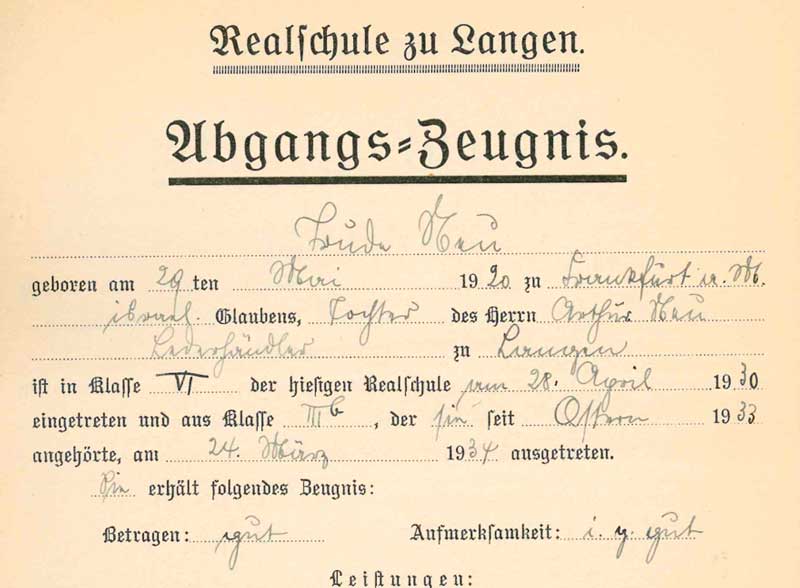 Realschule zu Langen.
Abgangs-Zeugnis.
Trude Neu
geboren am 29ten Mai 1920 zu Frankfurt a. M.
israel. Glaubens, Tochter des Herrn Arthur Neu
Lederhändler zu Langen
ist in Klasse VI der hiesigen Realschule am 28. April 1930
eingetreten und aus Klasse IIIb, der sie seit Ostern 1933
angehörte, am 24. März 1934 ausgetreten.
Sie erhält folgendes Zeugnis:
Betragen: gut Aufmerksamkeit: i. g. gut
Leistungen: